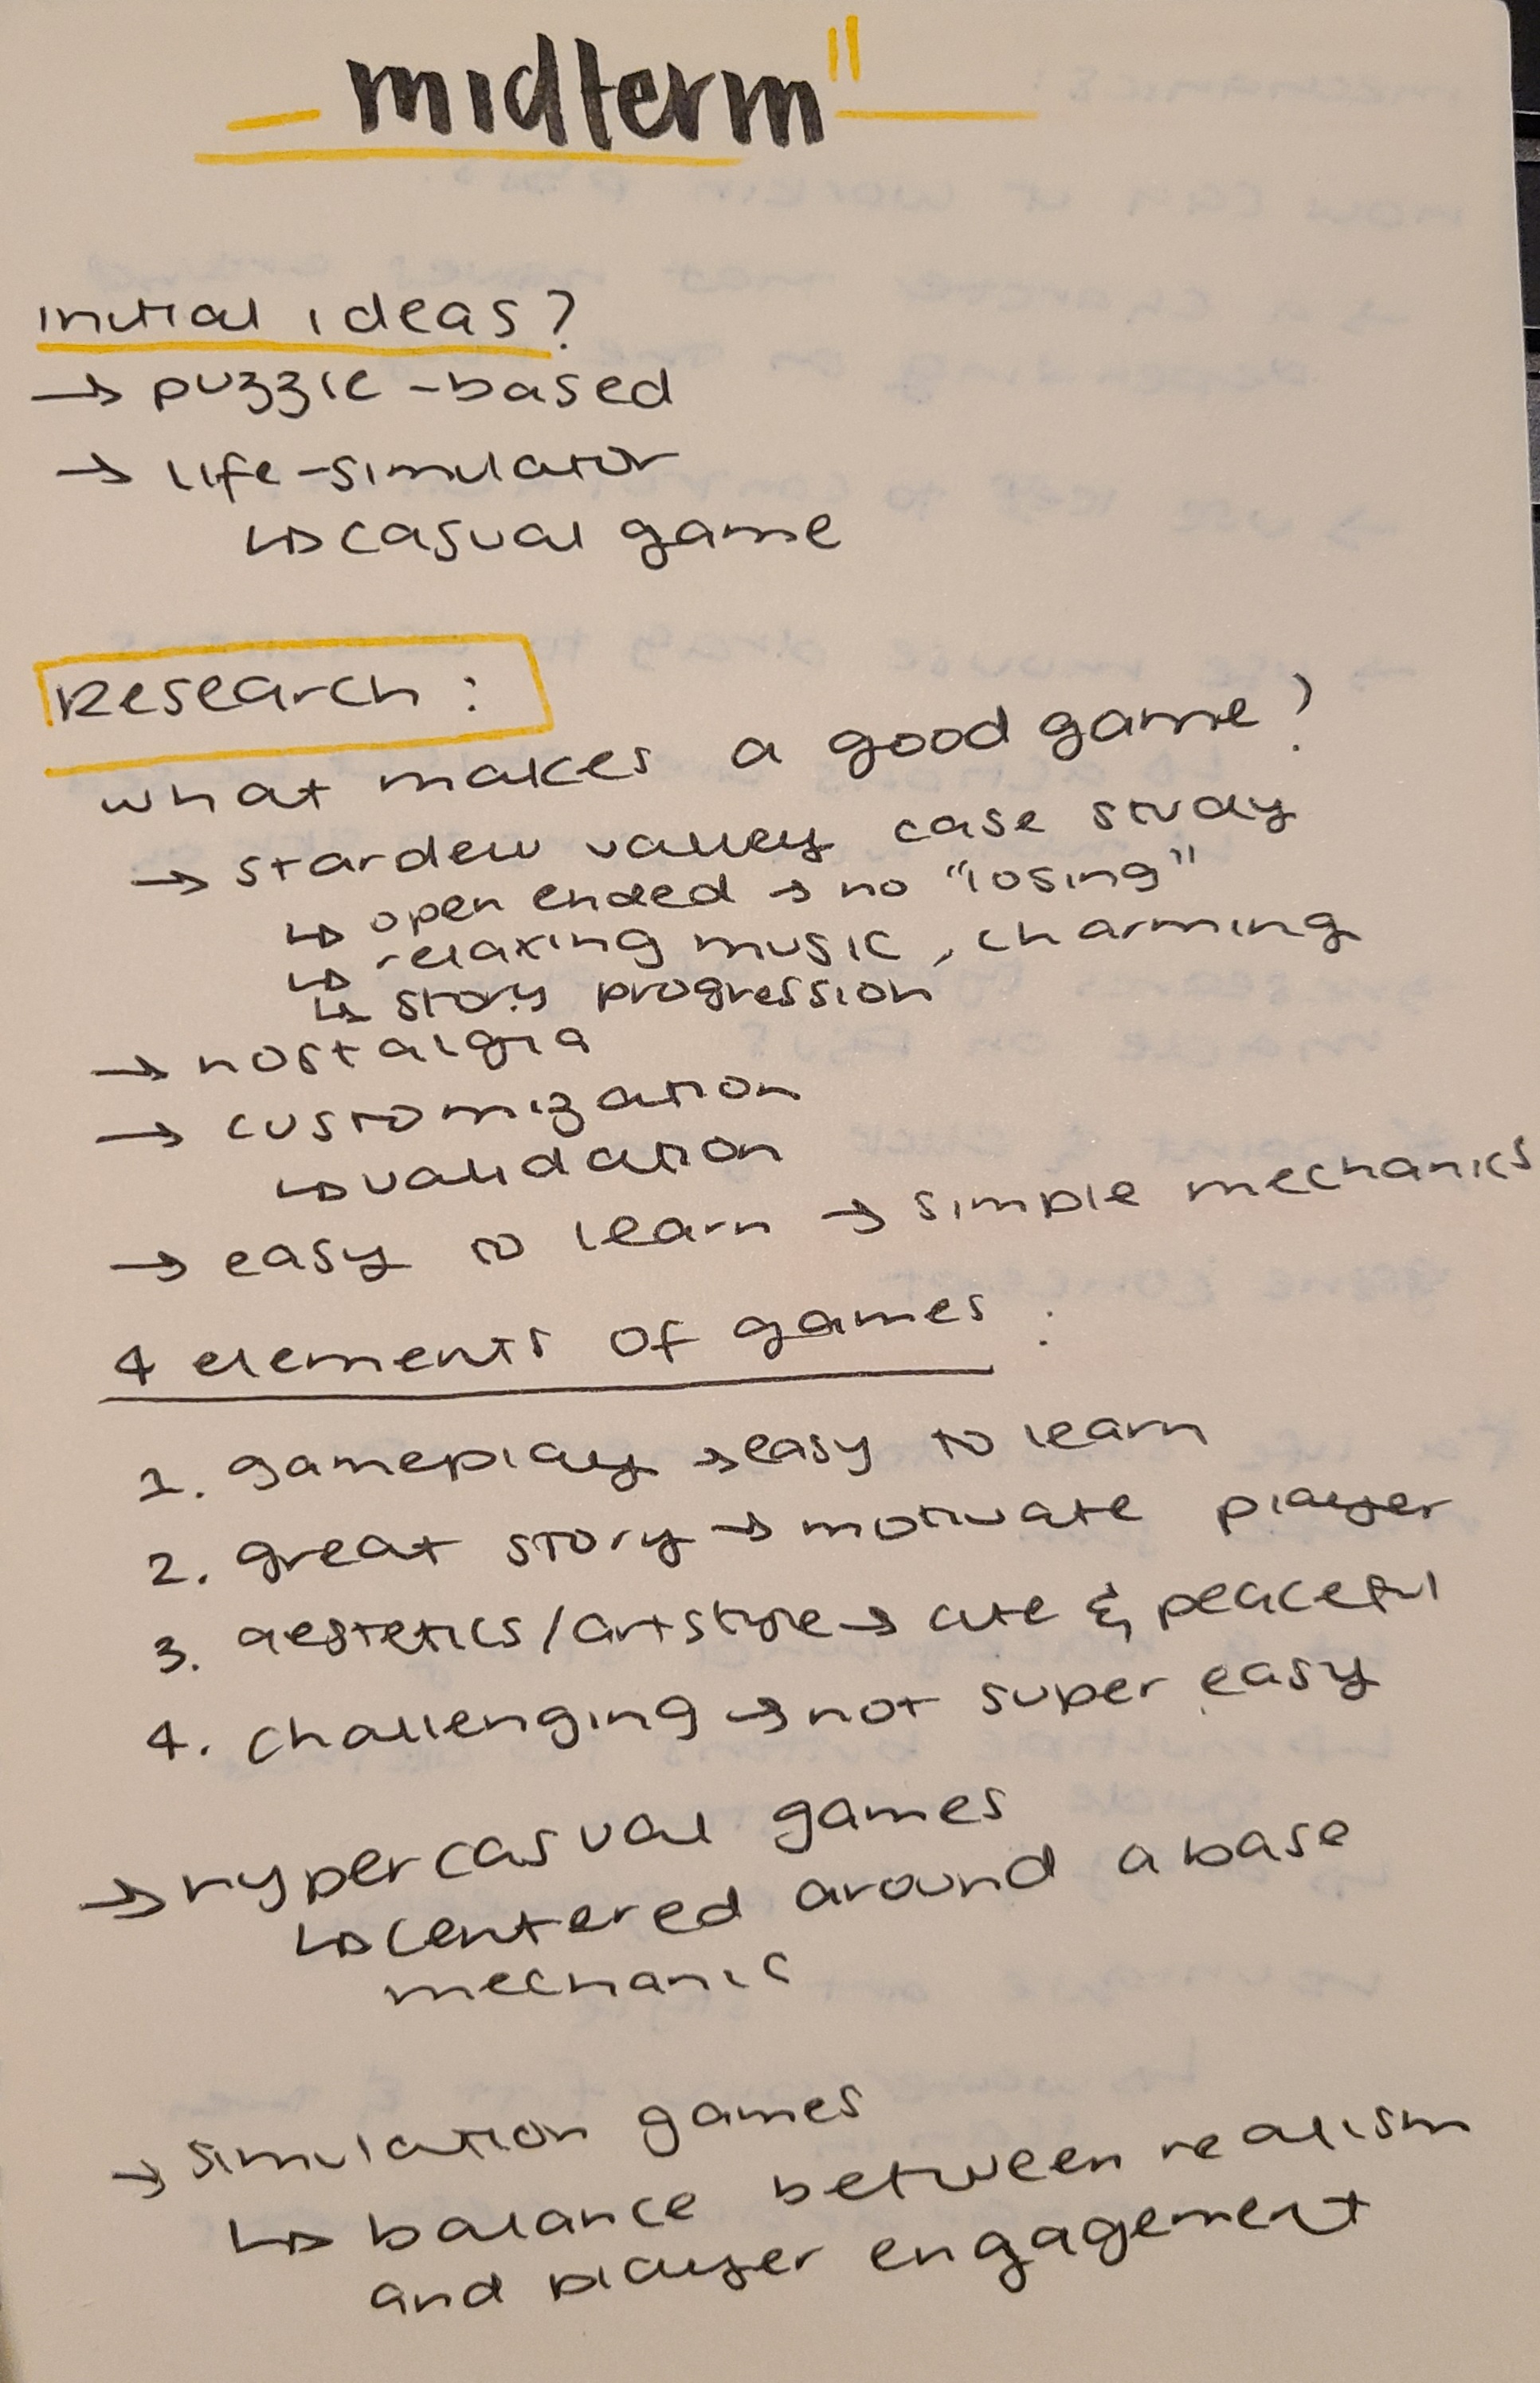 midterm"
initial ideas?
→ puzzle-based
→ life-simulator
↳ casual game
Research:
what makes a good game?
→ stardew valley case study
↳ open ended → no "losing"
↳ relaxing music, charming
↳ story progression
→ nostalgia
→ customization
↳ validation
→ easy to learn → simple mechanics
4 elements of games:
1. gameplay → easy to learn
2. great story → motivate player
3. aestetics/artstyle → cute & peaceful
4. challenging → not super easy
→ hypercasual games
↳ centered around a base
mechanic
→ simulation games
↳ balance between realism
and player engagement